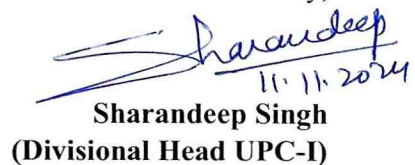 Sharandeep
11.11.2024
Sharandeep Singh
(Divisional Head UPC-I)